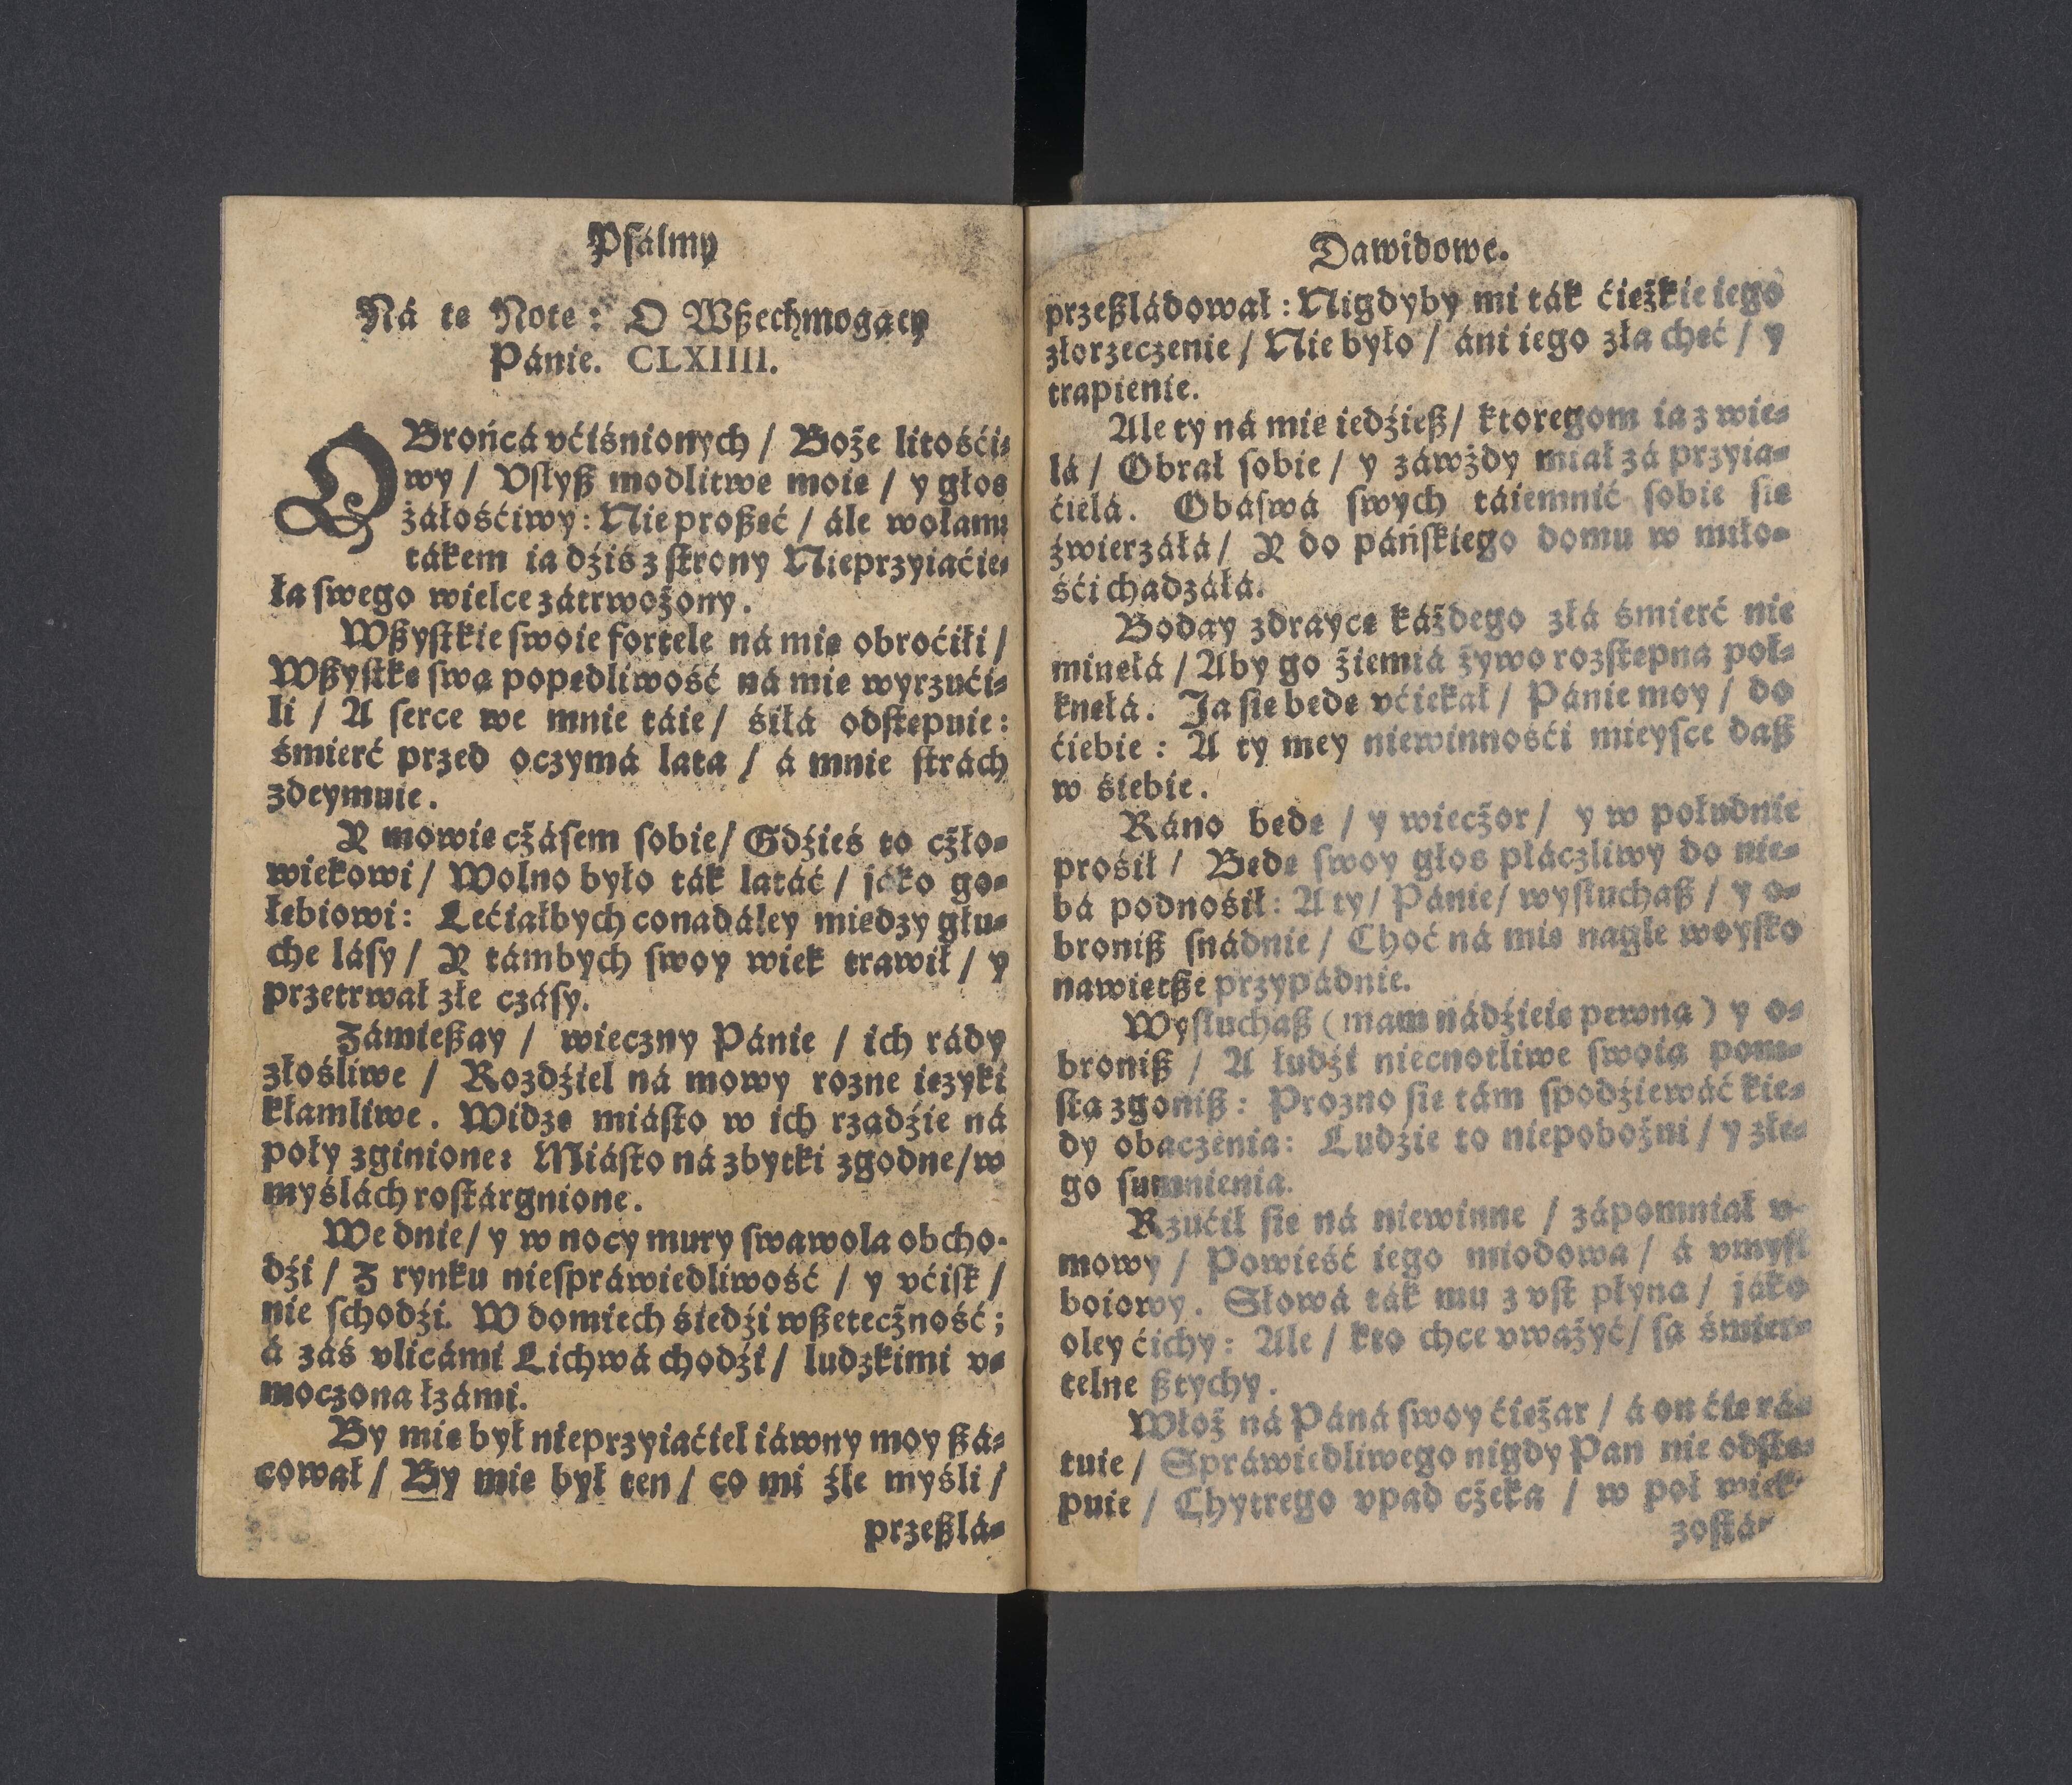 Psálmy
Ná tę Notę: O Wßechmogący
Pánie. CLXIIII.
OBrońcá vćiśnionych / Boże litośći-
wy / Vſłyß modlitwę moię / y głos
żáłośćiwy: Nie proßęć / ále wołam:
tákem ia dźiś z ſtrony Nieprzyiaćie-
la ſwego wielce zátrwożony.
Wßyſtkie ſwoie fortele ná mię obroćili /
Wßyſtkę ſwą popędliwość ná mię wyrzući-
li / A ſerce we mnie táie / śiłá odſtępuie:
śmierć przed oczymá lata / á mnie ſtrách
zdeymuie.
Y mowię czáſem ſobie / Gdźieś to czło-
wiekowi / Wolno było ták latáć / jáko go-
łębiowi: Lećiałbych co nadáley między głu-
che láſy / Y támbych ſwoy wiek trawił / y
przetrwał złe czáſy.
Zámießay / wieczny Pánie / ich rády
złośliwe / Rozdźiel ná mowy rozne ięzyki
kłamliwe. Widzę miáſto w ich rządźie ná
poły zginione: Miáſto ná zbytki zgodne / w
myślách roſtárgnione.
We dnie / y w nocy mury ſwawola obcho-
dźi / Z rynku nieſpráwiedliwość / y vćiſk /
nie ſchodźi. W domiech śiedźi wßeteczność;
á záś vlicámi Lichwá chodźi / ludzkimi v-
moczona łzámi.
By mię był nieprzyiaćiel iáwny moy ßá-
cował / By mię był ten / co mi źle myśli /
przeßlá-
Dawidowe.
przeßládował: Nigdyby mi ták ćięźkie iego
złorzeczenie / Nie było / áni iego zła chęć / y
trapienie.
Ale ty ná mię iedźieß / ktoregom ia z wie-
lá / Obrał ſobie / y záwżdy miał zá przyia-
ćielá. Obáſwá ſwych táiemnić ſobie ſię
źwierzáłá / Y do páńſkiego domu w miło-
śći chadzáłá.
Boday zdraycę káżdego złá śmierć nie
minęłá / Aby go źiemiá żywo rozſtępną poł-
knęłá. Ja ſię będę vćiekał / Pánie moy / do
ćiebie: A ty mey niewinnośći mieyſce daß
w śiebie.
Ráno będę / y wieczor / y w południe
prośił / Będę ſwoy głos płáczliwy do nie-
bá podnośił: A ty / Pánie / wyſłuchaß / y o-
broniß ſnádnie / Choć ná mię nagle woyſko
nawiętße przypádnie.
Wyſłuchaß (mam nádźieię pewną) y o-
broniß / A ludźi niecnotliwe ſwoią pom-
ſtą zgoniß: Prozno ſię tám ſpodźiewáć kie-
dy obaczenia: Ludzie to niepobożni / y złe-
go ſumnienia.
Rzućił ſię ná niewinne / zápomniał v-
mowy / Powieść iego miodowa / á vmyſł
boiowy. Słowá ták mu z vſt płyną / jáko
oley ćichy: Ale / kto chce vważyć / ſą śmier-
telne ßtychy.
Włoż ná Páná ſwoy ćiężar / á on ćię rá-
tuie / Spráwiedliwego nigdy Pan nie odſtę-
puie / Chytrego vpad czeka / w poł wiek-
zoſtá-